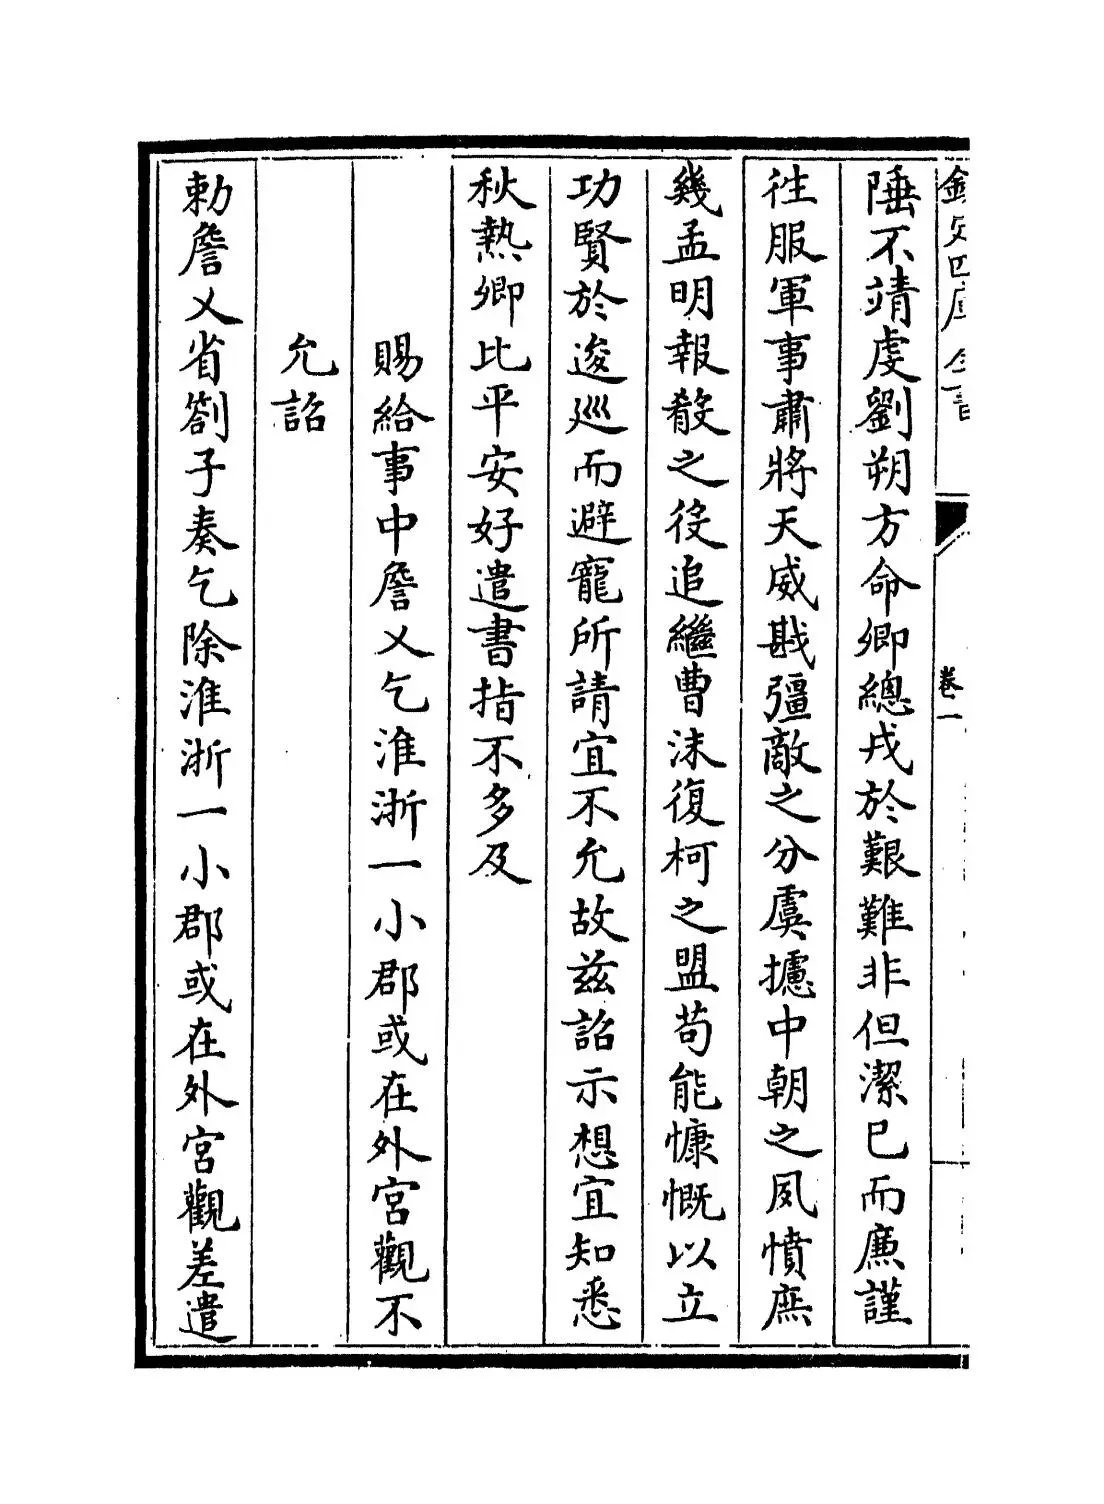 欽定四庫全書
卷一
陲不靖虔劉朔方命卿總戎於艱難非但潔已而廉謹
往服軍事肅將天威戡彊敵之分虞攄中朝之夙憤庶
幾孟明報殽之役追繼曹沫復柯之盟苟能慷慨以立
功賢於逡巡而避寵所請宜不允故兹詔示想宜知悉
秋熱卿比平安好遣書指不多及
賜給事中詹乂乞淮浙一小郡或在外宮觀不
允詔
勅詹乂省劄子奏乞除淮浙一小郡或在外宮觀差遣